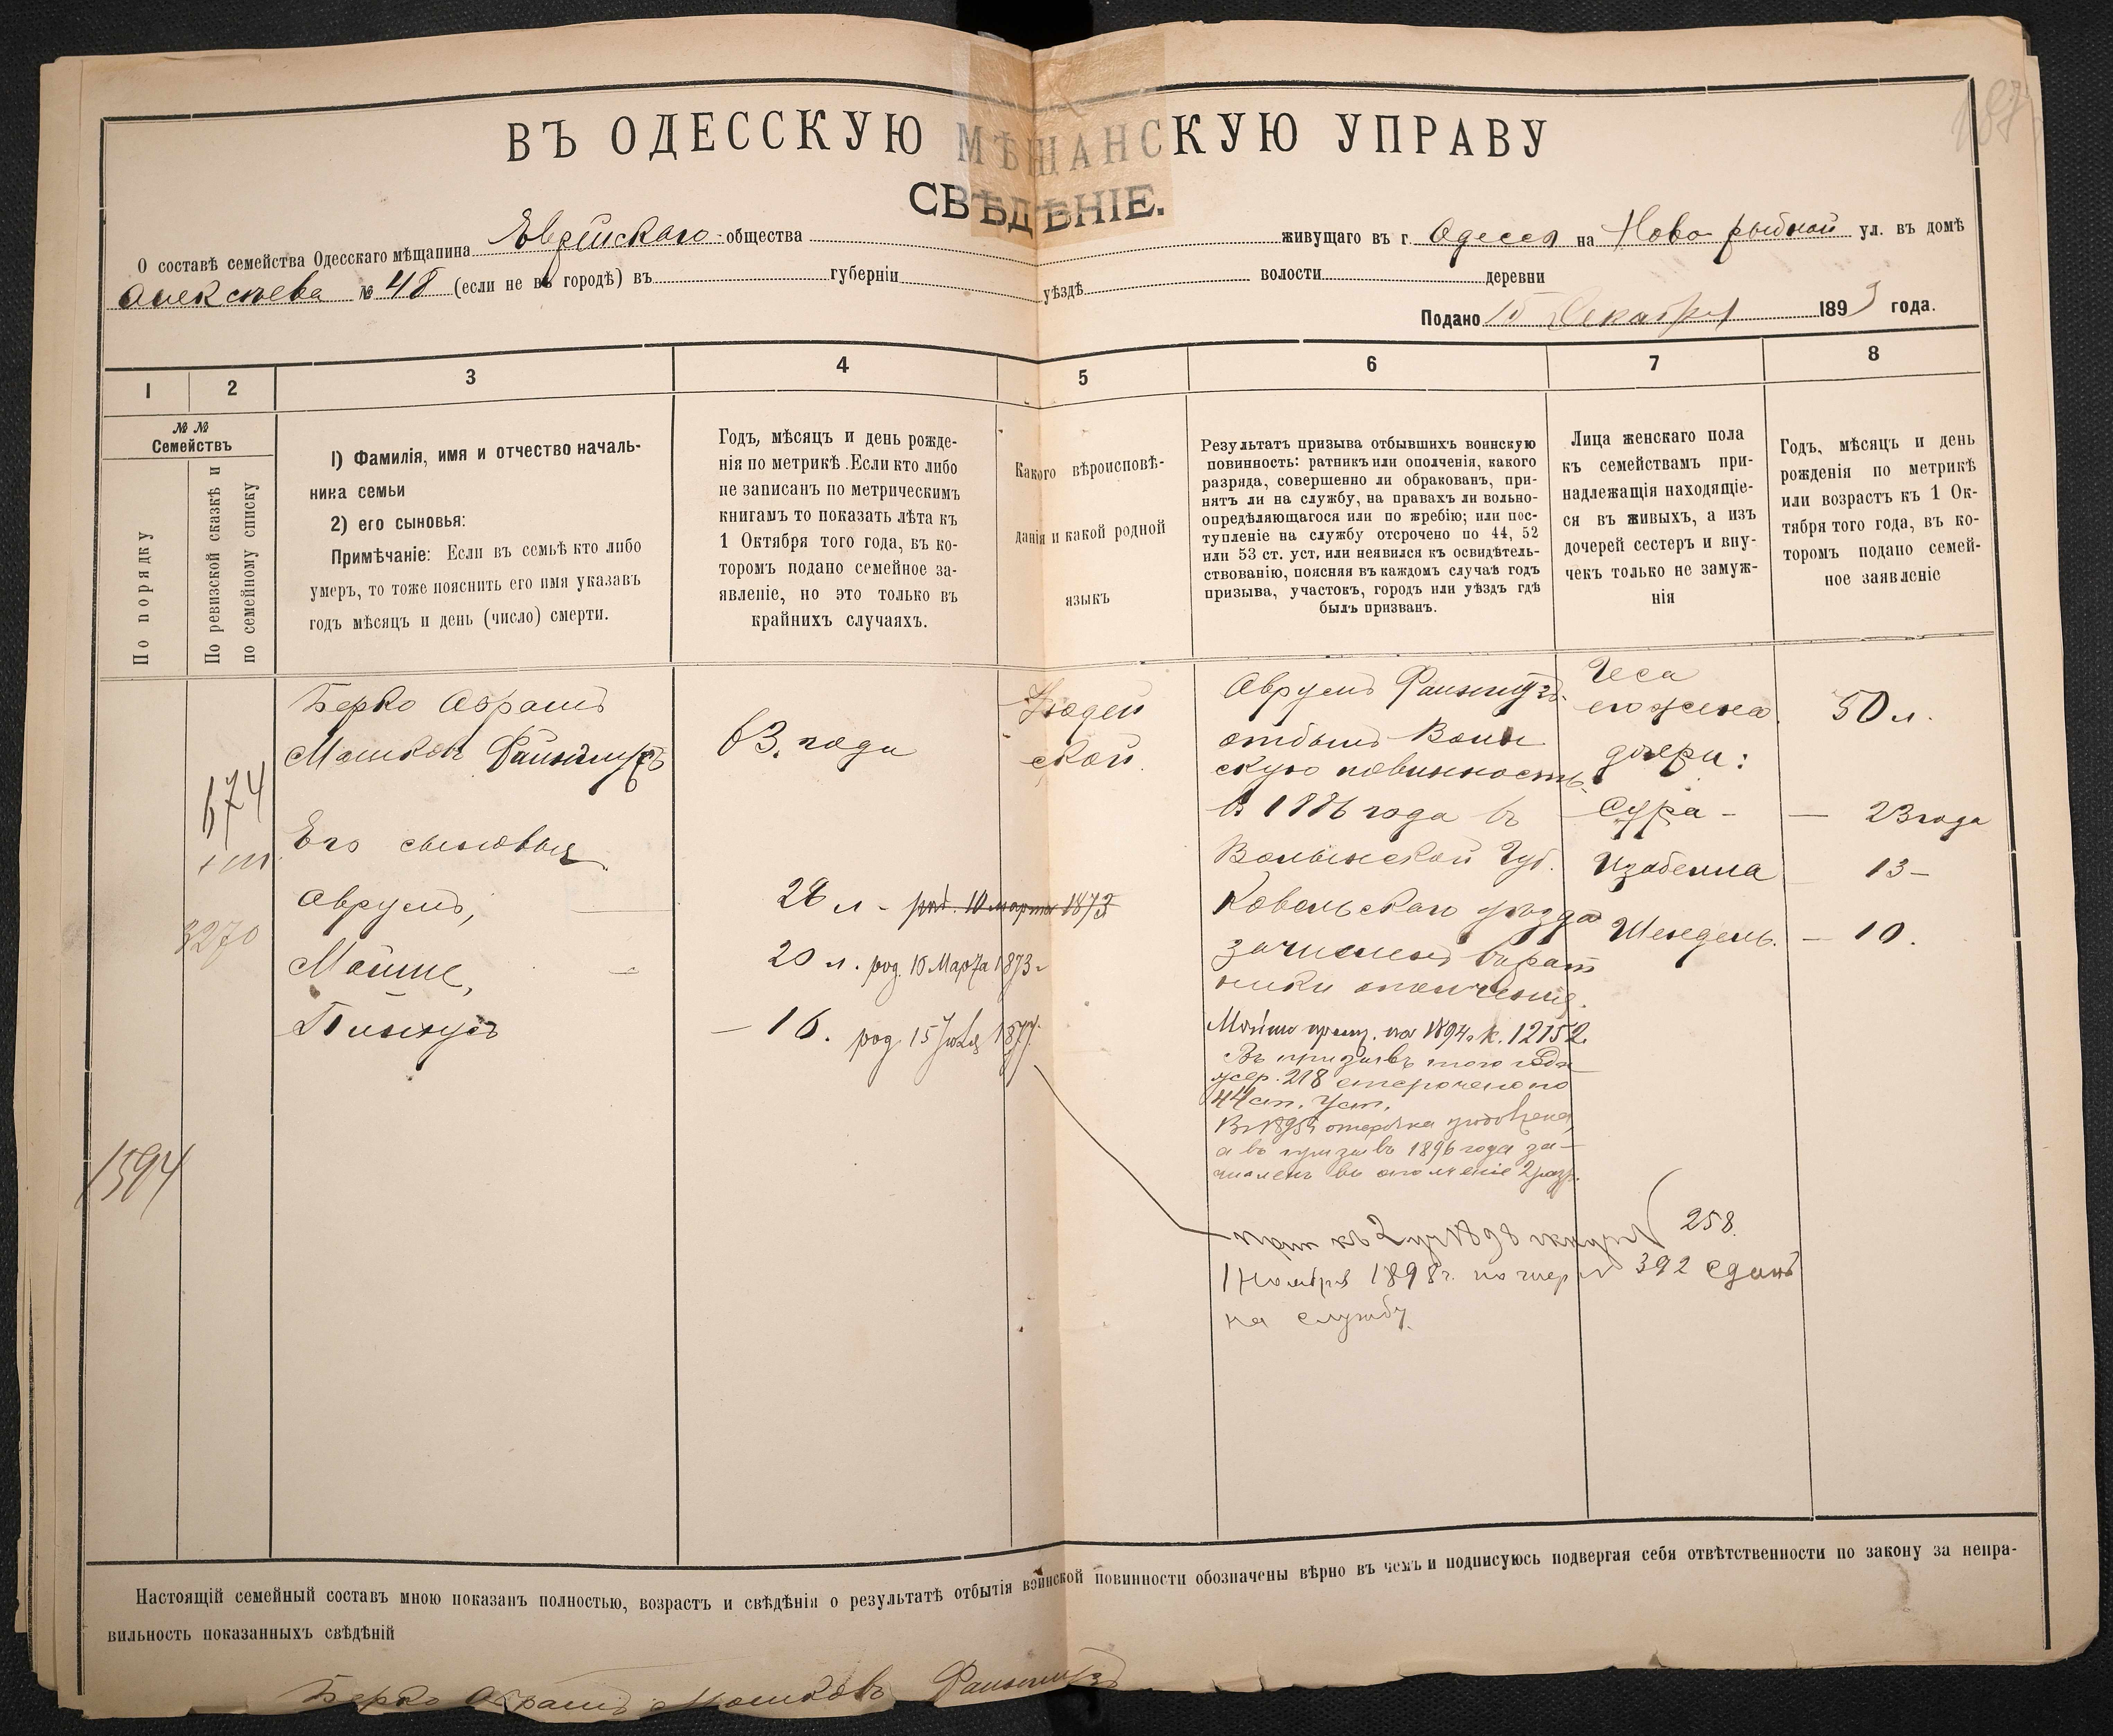 ВЪ ОДЕССКУЮ МѢЩАНСКУЮ УПРАВУ
СВѢДѢНІЕ.
О составѣ семейства Одесскаго мѣщанина Еврейскаго общества живущаго въ г. Одесса на Ново рыбной ул. въ домѣ
Алексѣева № 48 (если не въ городѣ) въ губерніи уѣздѣ волости деревни
Подано 15 Декабря 1893 года.
1 2 3 4 5 6 7 8
№ №
Семействъ
По порядку
По ревизской сказкѣ и
по семейному списку
1) Фамилія, имя и отчество началь-
ника семьи
2) его сыновья:
Примѣчаніе: Если въ семьѣ кто либо
умеръ, то тоже пояснить его имя указавъ
годъ мѣсяцъ и день (число) смерти.
Годъ, мѣсяцъ и день рожде-
нія по метрикѣ. Если кто либо
не записанъ по метрическимъ
книгамъ то показать лѣта къ
1 Октября того года, въ ко-
торомъ подано семейное за-
явленіе, но это только въ
крайнихъ случаяхъ.
Какого вѣроисповѣ-
данія и какой родной
языкъ
Результатъ призыва отбывшихъ воинскую
повинность: ратникъ или ополченія, какого
разряда, совершенно ли обракованъ, при-
нятъ ли на службу, на правахъ ли вольно-
опредѣляющагося или по жребію; или пос-
тупленіе на службу отсрочено по 44, 52
или 53 ст. уст. или неявился къ освидѣтель-
ствованію, поясняя въ каждомъ случаѣ годъ
призыва, участокъ, городъ или уѣздъ гдѣ
былъ призванъ.
Лица женскаго пола
къ семействамъ при-
надлежащія находящіе-
ся въ живыхъ, а изъ
дочерей сестеръ и вну-
чекъ только не замуж-
нія
Годъ, мѣсяцъ и день
рожденія по метрикѣ
или возрастъ къ 1 Ок-
тября того года, въ ко-
торомъ подано семей-
ное заявленіе
674
3270
1594
Берко Абрамъ
Мошковъ Файнгмузъ
Его сыновья
Аврумъ,
Мойше,
Пинхусъ
63. года
28 л - род. 10 марта 1873
20 л. род. 10 Марта 1873 г
— 16. род 15 Іюля 1877.
Іюдей
ской
Аврумъ
отбылъ Воин
скую повинность
въ 1886 года въ
Волынской Губ.
Ковельскаго уѣзда
зачисленъ въ рат
ники ополченія.
Мойше на 1894 г. к. 12152.
Въ призывѣ того года
жер. 218 отсрочено по
44 ст. Уст.
В 1895 г отсрочка
а въ призывъ 1896 года за-
численъ въ ополченіе 2 разр.
258
1 Ноября 1898 г. по жер 392 сданъ
на службу.
Геса
его жена 50 л.
дочери:
Сура - — 23 года
Изабелла — 13 -
Шендель. — 10.
Настоящій семейный составъ мною показанъ полностью, возрастъ и свѣдѣнія о результатѣ отбытія воинской повинности обозначены вѣрно въ чемъ и подписуюсь подвергая себя отвѣтственности по закону за непра-
вильность показанныхъ свѣдѣній
Берко Абрамъ Мошковъ